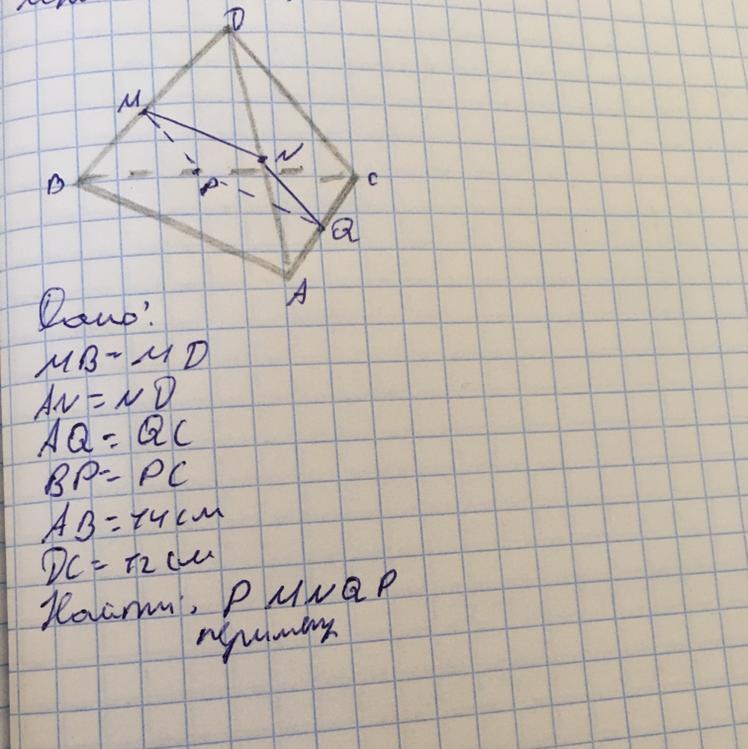 D
M
N
B
P
C
Q
A
Дано:
MB = MD
AN = ND
AQ = QC
BP = PC
AB = 14 см
DC = 12 см
Найти: P MNQP